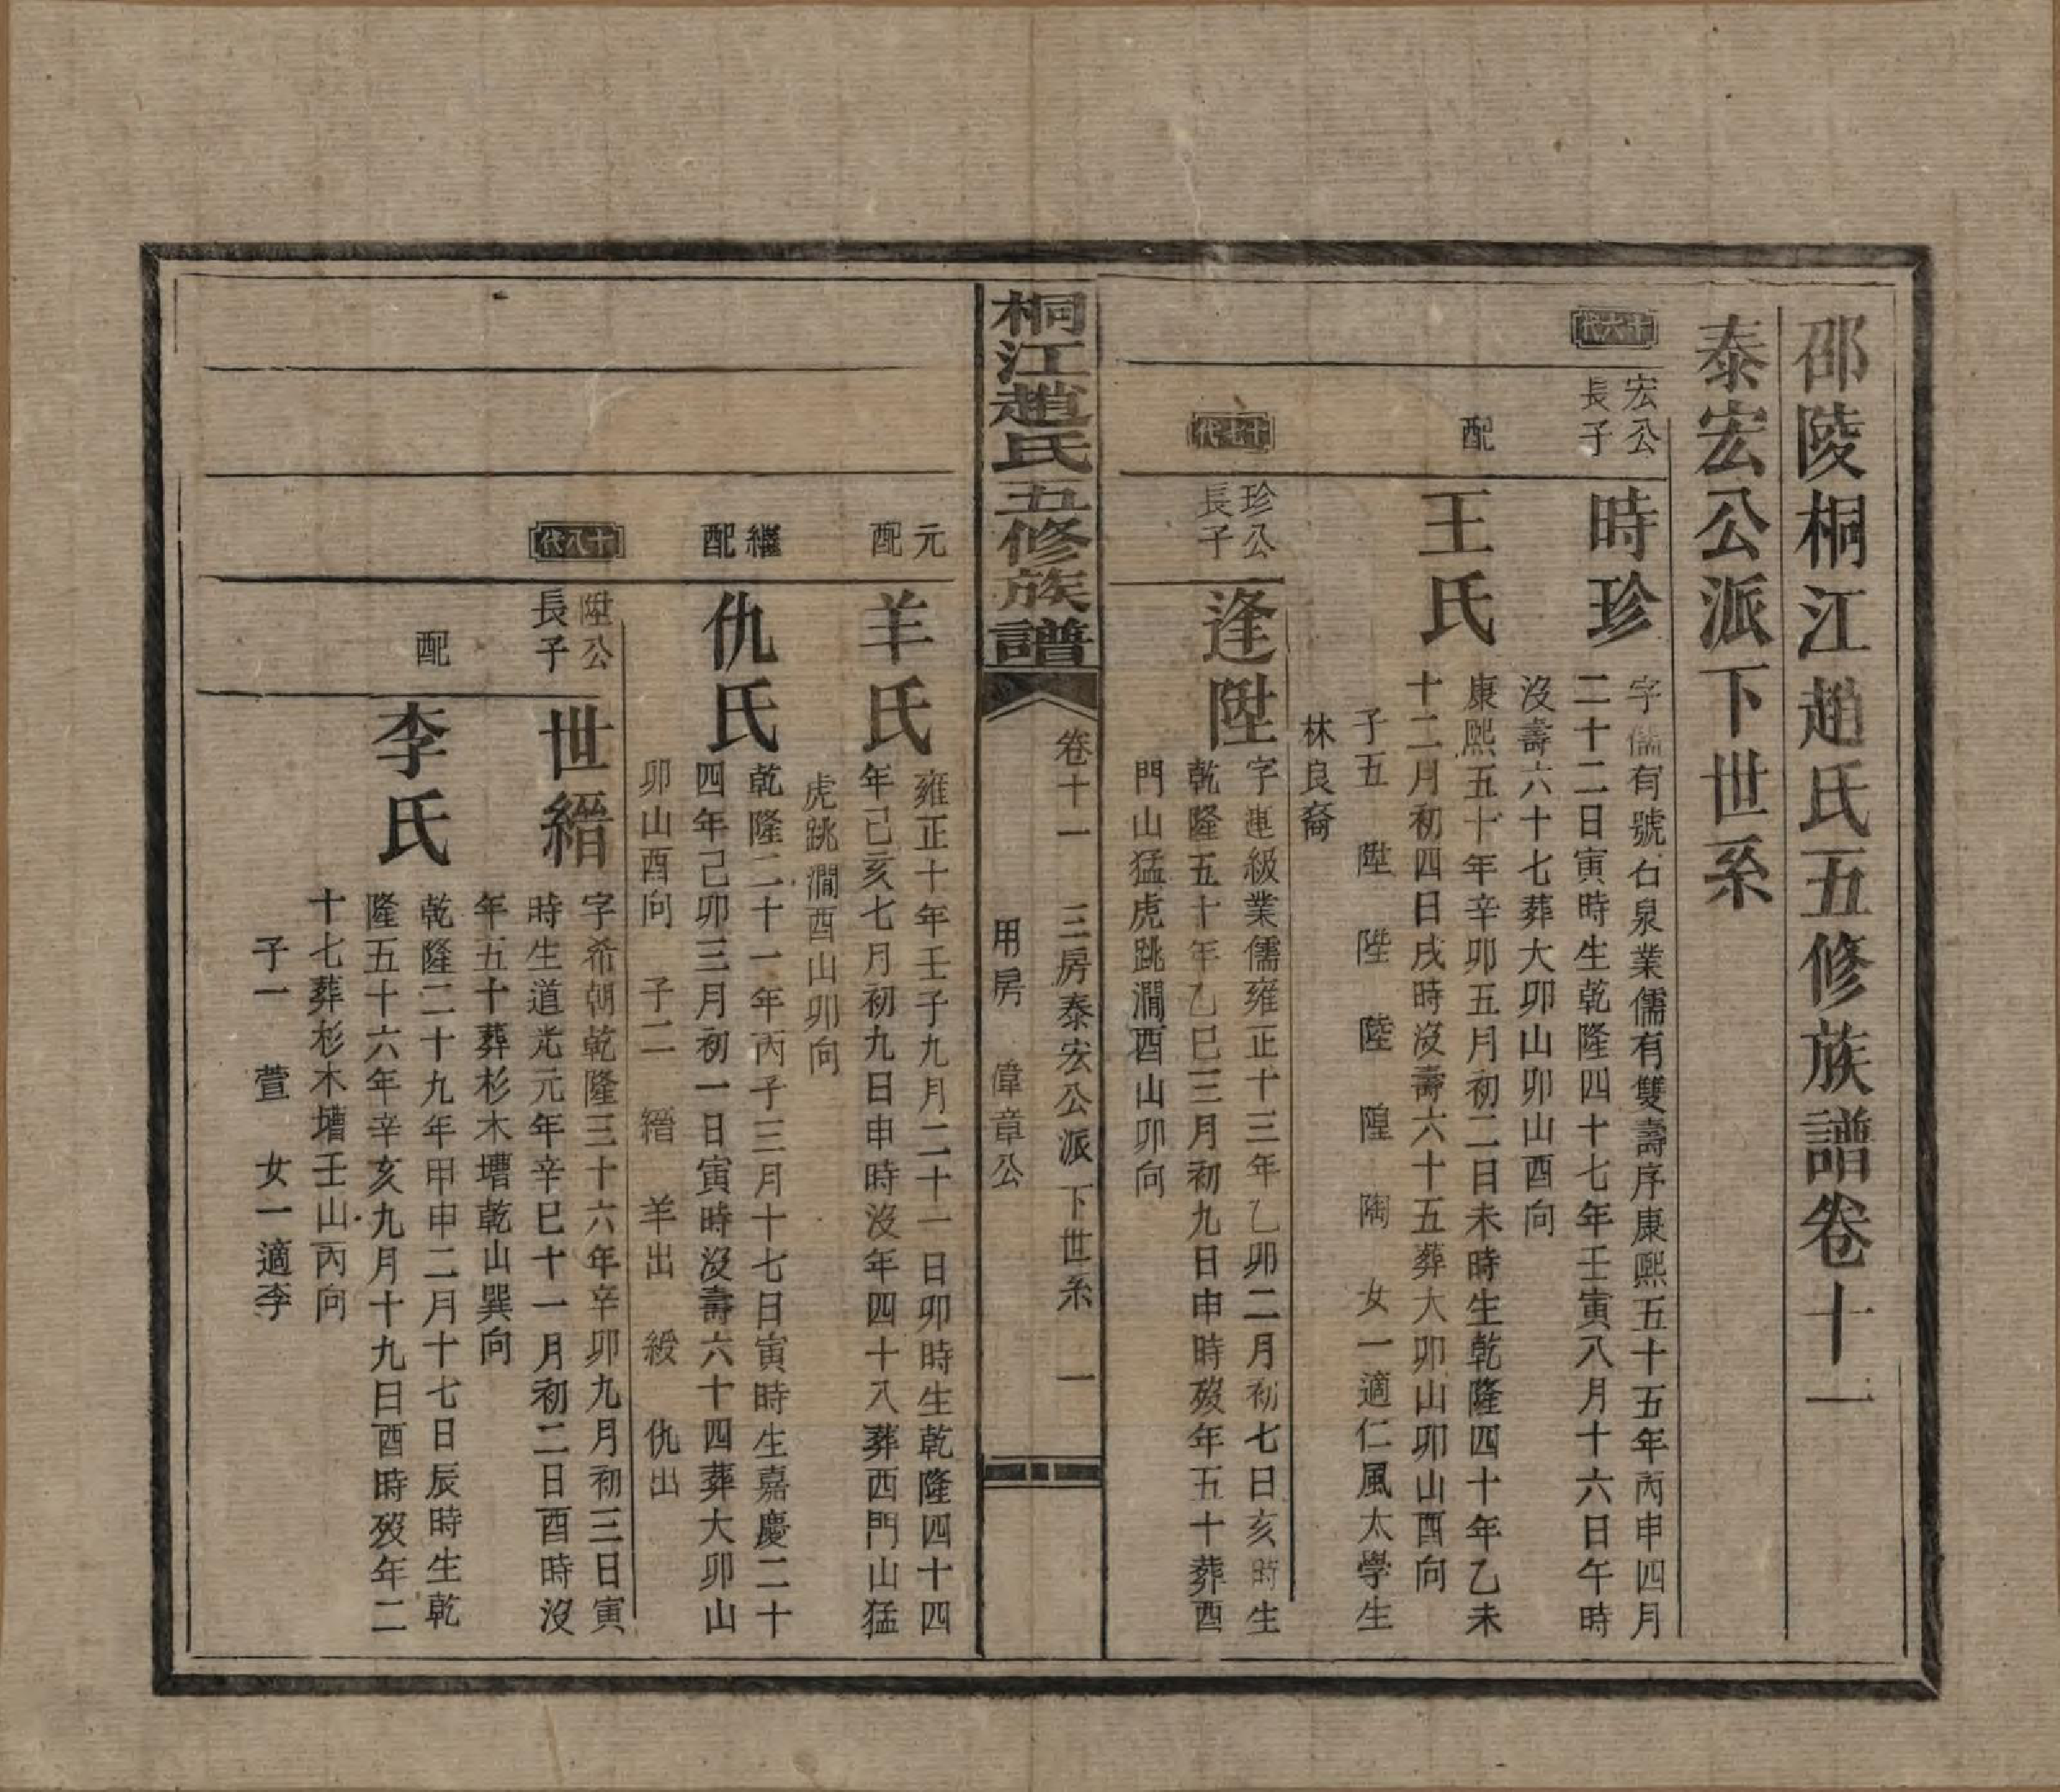 邵陵桐江趙氏五修族譜卷十一
泰宏公派下世系
十六代
宏公
長子
時珍
字儒有號石泉業儒有雙壽序康熙五十五年丙申四月
二十二日寅時生乾隆四十七年壬寅八月十六日午時
沒壽六十七葬大卯山卯山酉向
配
王氏
康熙五十年辛卯五月初二日未時生乾隆四十年乙未
十二月初四日戌時沒壽六十五葬大卯山卯山酉向
子五 陞 陛 陸 隍 陶 女一適仁風太學生
林良裔
十七代
珍公
長子
逢陞
字連級業儒雍正十三年乙卯二月初七日亥時生
乾隆五十年乙巳三月初九日申時歿年五十葬西
門山猛虎跳澗酉山卯向
桐江趙氏五修族譜
卷十一 三房泰宏公派下世系 一
用房 偉章公
元
配
羊氏
雍正十年壬子九月二十一日卯時生乾隆四十四
年己亥七月初九日申時沒年四十八葬西門山猛
虎跳澗酉山卯向
繼
配
仇氏
乾隆二十一年丙子三月十七日寅時生嘉慶二十
四年己卯三月初一日寅時沒壽六十四葬大卯山
卯山酉向 子二 縉 羊出 綬 仇出
十八代
陞公
長子
世縉
字希朝乾隆三十六年辛卯九月初三日寅
時生道光元年辛巳十一月初二日酉時沒
年五十葬杉木壋乾山巽向
配
李氏
乾隆二十九年甲申二月十七日辰時生乾
隆五十六年辛亥九月十九日酉時歿年二
十七葬杉木壋壬山丙向
子一 萱 女一適李